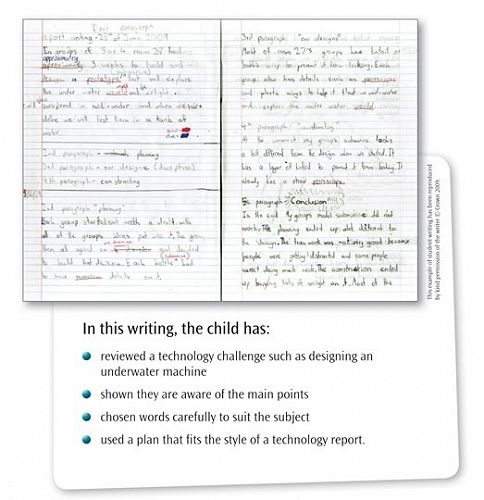 first paragraph
report writing - 25th of June 2009
In groups of 3 or 4 room 27 had
approximately
3 weeks to build and
design a prototype that will explore
the under water world
suspend in mid-water and when
done we will test them in a tank of
water.
2nd paragraph - planning
3rd paragraph - our designs (description)
4th paragraph - constructing
2nd paragraph "planning"
Each group started out with a draft with
all of the groups ideas put into it. The group
then all agreed on and decided
to build that decision. Each had
to have details on it.
3rd paragraph "our designs"
Most of room 27's groups have
bottle to prevent it from leaking. Each
group also has details such as periscopes
and to help it float in mid-water
and explore the under water world.
4th paragraph "constructing"
At the moment my groups submarine looks
a bit different from the design when we started. It
has a layer of to it from. It
already has a periscope.
5th paragraph - Conclusion
In the end my groups model submarine did not
work. The planning ended up abit different to
the design. The team work was not very good because
people were getting distracted and some people
wasn't doing much work. The construction ended
up lots of weight on it. Most of the
This example of student writing has been reproduced
by kind permission of the writer © Crown 2009.
In this writing, the child has:
reviewed a technology challenge such as designing an
underwater machine
shown they are aware of the main points
chosen words carefully to suit the subject
used a plan that fits the style of a technology report.